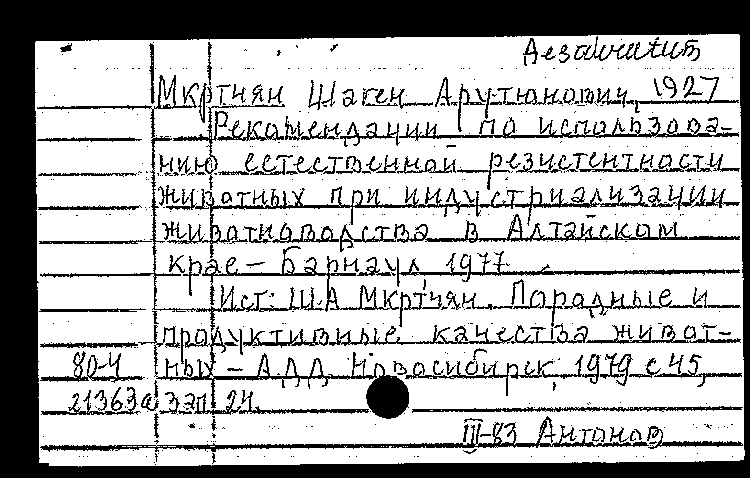 Мкртчян Шаген Арутюнович, 1927
Рекомендации по использова-
нию естественной резистентности
животных при индустриализации
животноводства в Алтайском
крае - Барнаул, 1977
Ист: Ш.А Мкртчян. Породные и
продуктивные качества живот-
80-4 ных - А.Д.Д. Новосибирск, 1979 с 45,
21363а зап. 24.
III-83 Антонов